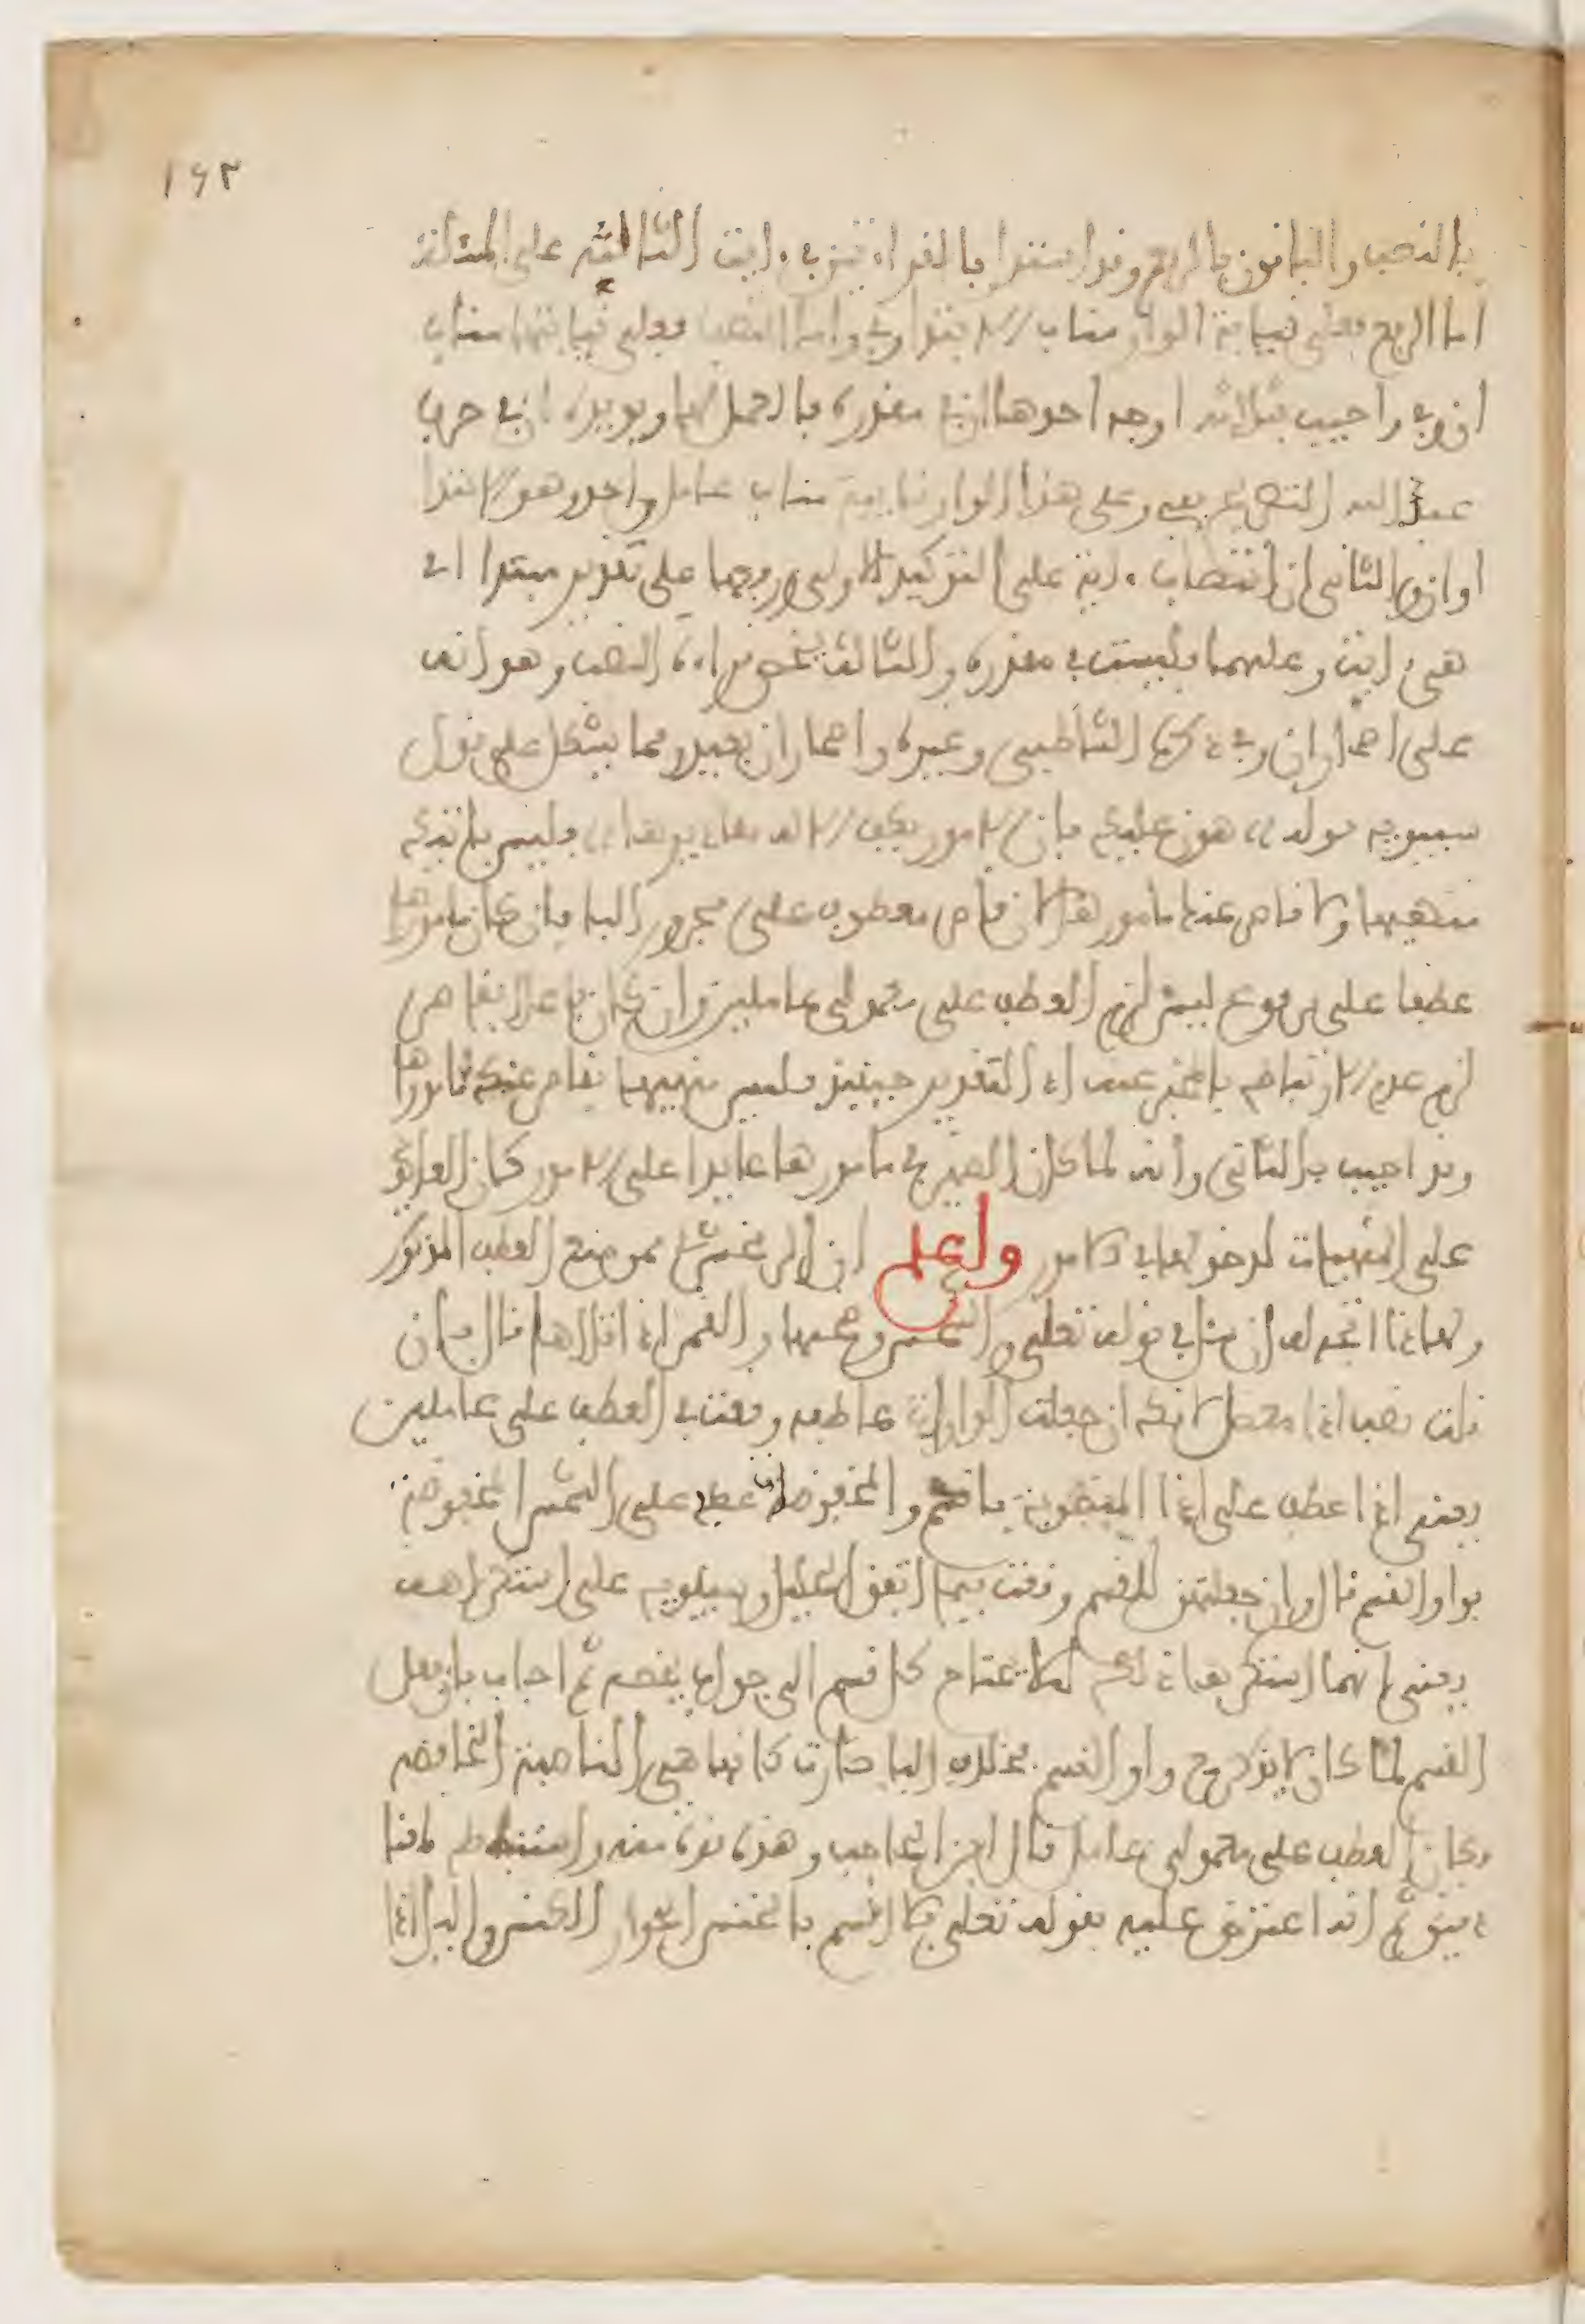 ١٤٣
بالنصب والباقون بالرفع وقد استدل بالقراءتين في ءايت الثالثة على المسئلة
اما الرفع فعلى نيابة الواو مناب الابتدا وفي واما النصب فعلى نيابتها مناب
ان وفي واجيب بثلاثة اوجه احدها ان في مقدرة بالعمل لها ويويده ان في حرف
عبد الله التصريح بفي وعلى هذا الواو نايبة مناب عامل واحد وهو الابتدا
او ان والثاني ان انتصاب ءايت على التوكيد للاولى ورفعها على تقدير مبتدا اي
هي ءايت وعليهما فليست في مقدرة والثالث يخص قراءة النصب وهو انه
على اضمار ان وفي ذكره الشاطبي وغيره واضمار ان بعيد ومما يشكل على قول
سيبويه قوله هون عليك فان الامور بكف الاله مقاديرها فليس بآتيك
منهيها ولا قاصر عنك مامورها لان قاصر معطوف على مجرور البا فان كان مامورها
عطفا على مرفوع ليس لزم العطف على معمولي عاملين وان كان فاعلا بقاصر
لزم عدم الارتباط بالمخبر عنه اذ التقدير حينئذ فليس منهيها بقاصر عنك مامورها
وقد اجيب بالثاني وانه لما كان الضمير في مامورها عايدا على الامور كان كالعايد
على المنهيات لدخولها في الامور واعلم ان الزمخشري ممن منع العطف المذكور
ولهذا اتجه له ان يسأل في قوله تعلى والشمس وضحيها والقمر اذا تليها قال فان
قلت نصب اذا معضل لانك ان جعلت الواوات عاطفة وقعت في العطف على عاملين
يعني اذا عطف على اذا المنصوبة باقسم والمخفوضة عطف على الشمس المخفوضة
بواو القسم قال وان جعلتهن للقسم وقعت فيما اتفق الخليل وسيبويه على استكراهه
يعني انهما استكرها ذلك ليلا يحتاج كل قسم الى جواب يخصه ثم اجاب بان فعل
القسم لما كان لا يذكر مع واو القسم بخلاف البا صارت كانها هي الناصبة الخافضة
فكان العطف على معمولي عامل قال ابن الحاجب وهذه قوة منه واستنباط لمعنى
دقيق ثم انه اعترض عليه بقوله تعلى فلا اقسم بالخنس الجوار الكنس واليل اذا